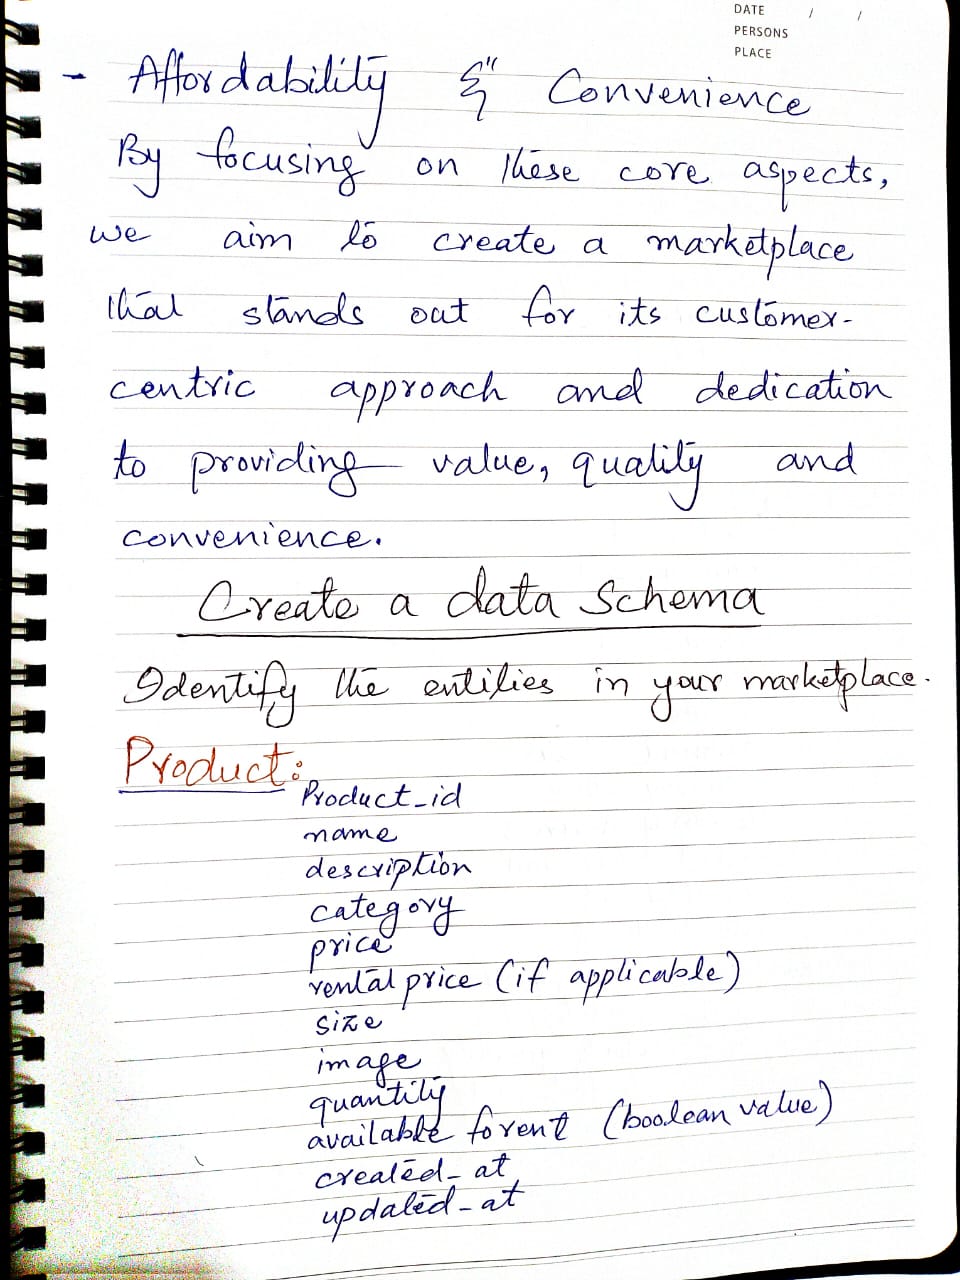 DATE / /
PERSONS
PLACE
- Affordability & Convenience
By focusing on these core aspects,
we aim to create a marketplace
that stands out for its customer-
centric approach and dedication
to providing value, quality and
convenience.
Create a data Schema
Identify the entities in your marketplace.
Product:
Product_id
name
description
category
price
rental price (if applicable)
size
image
quantity
available forent (boolean value)
created_at
updated_at